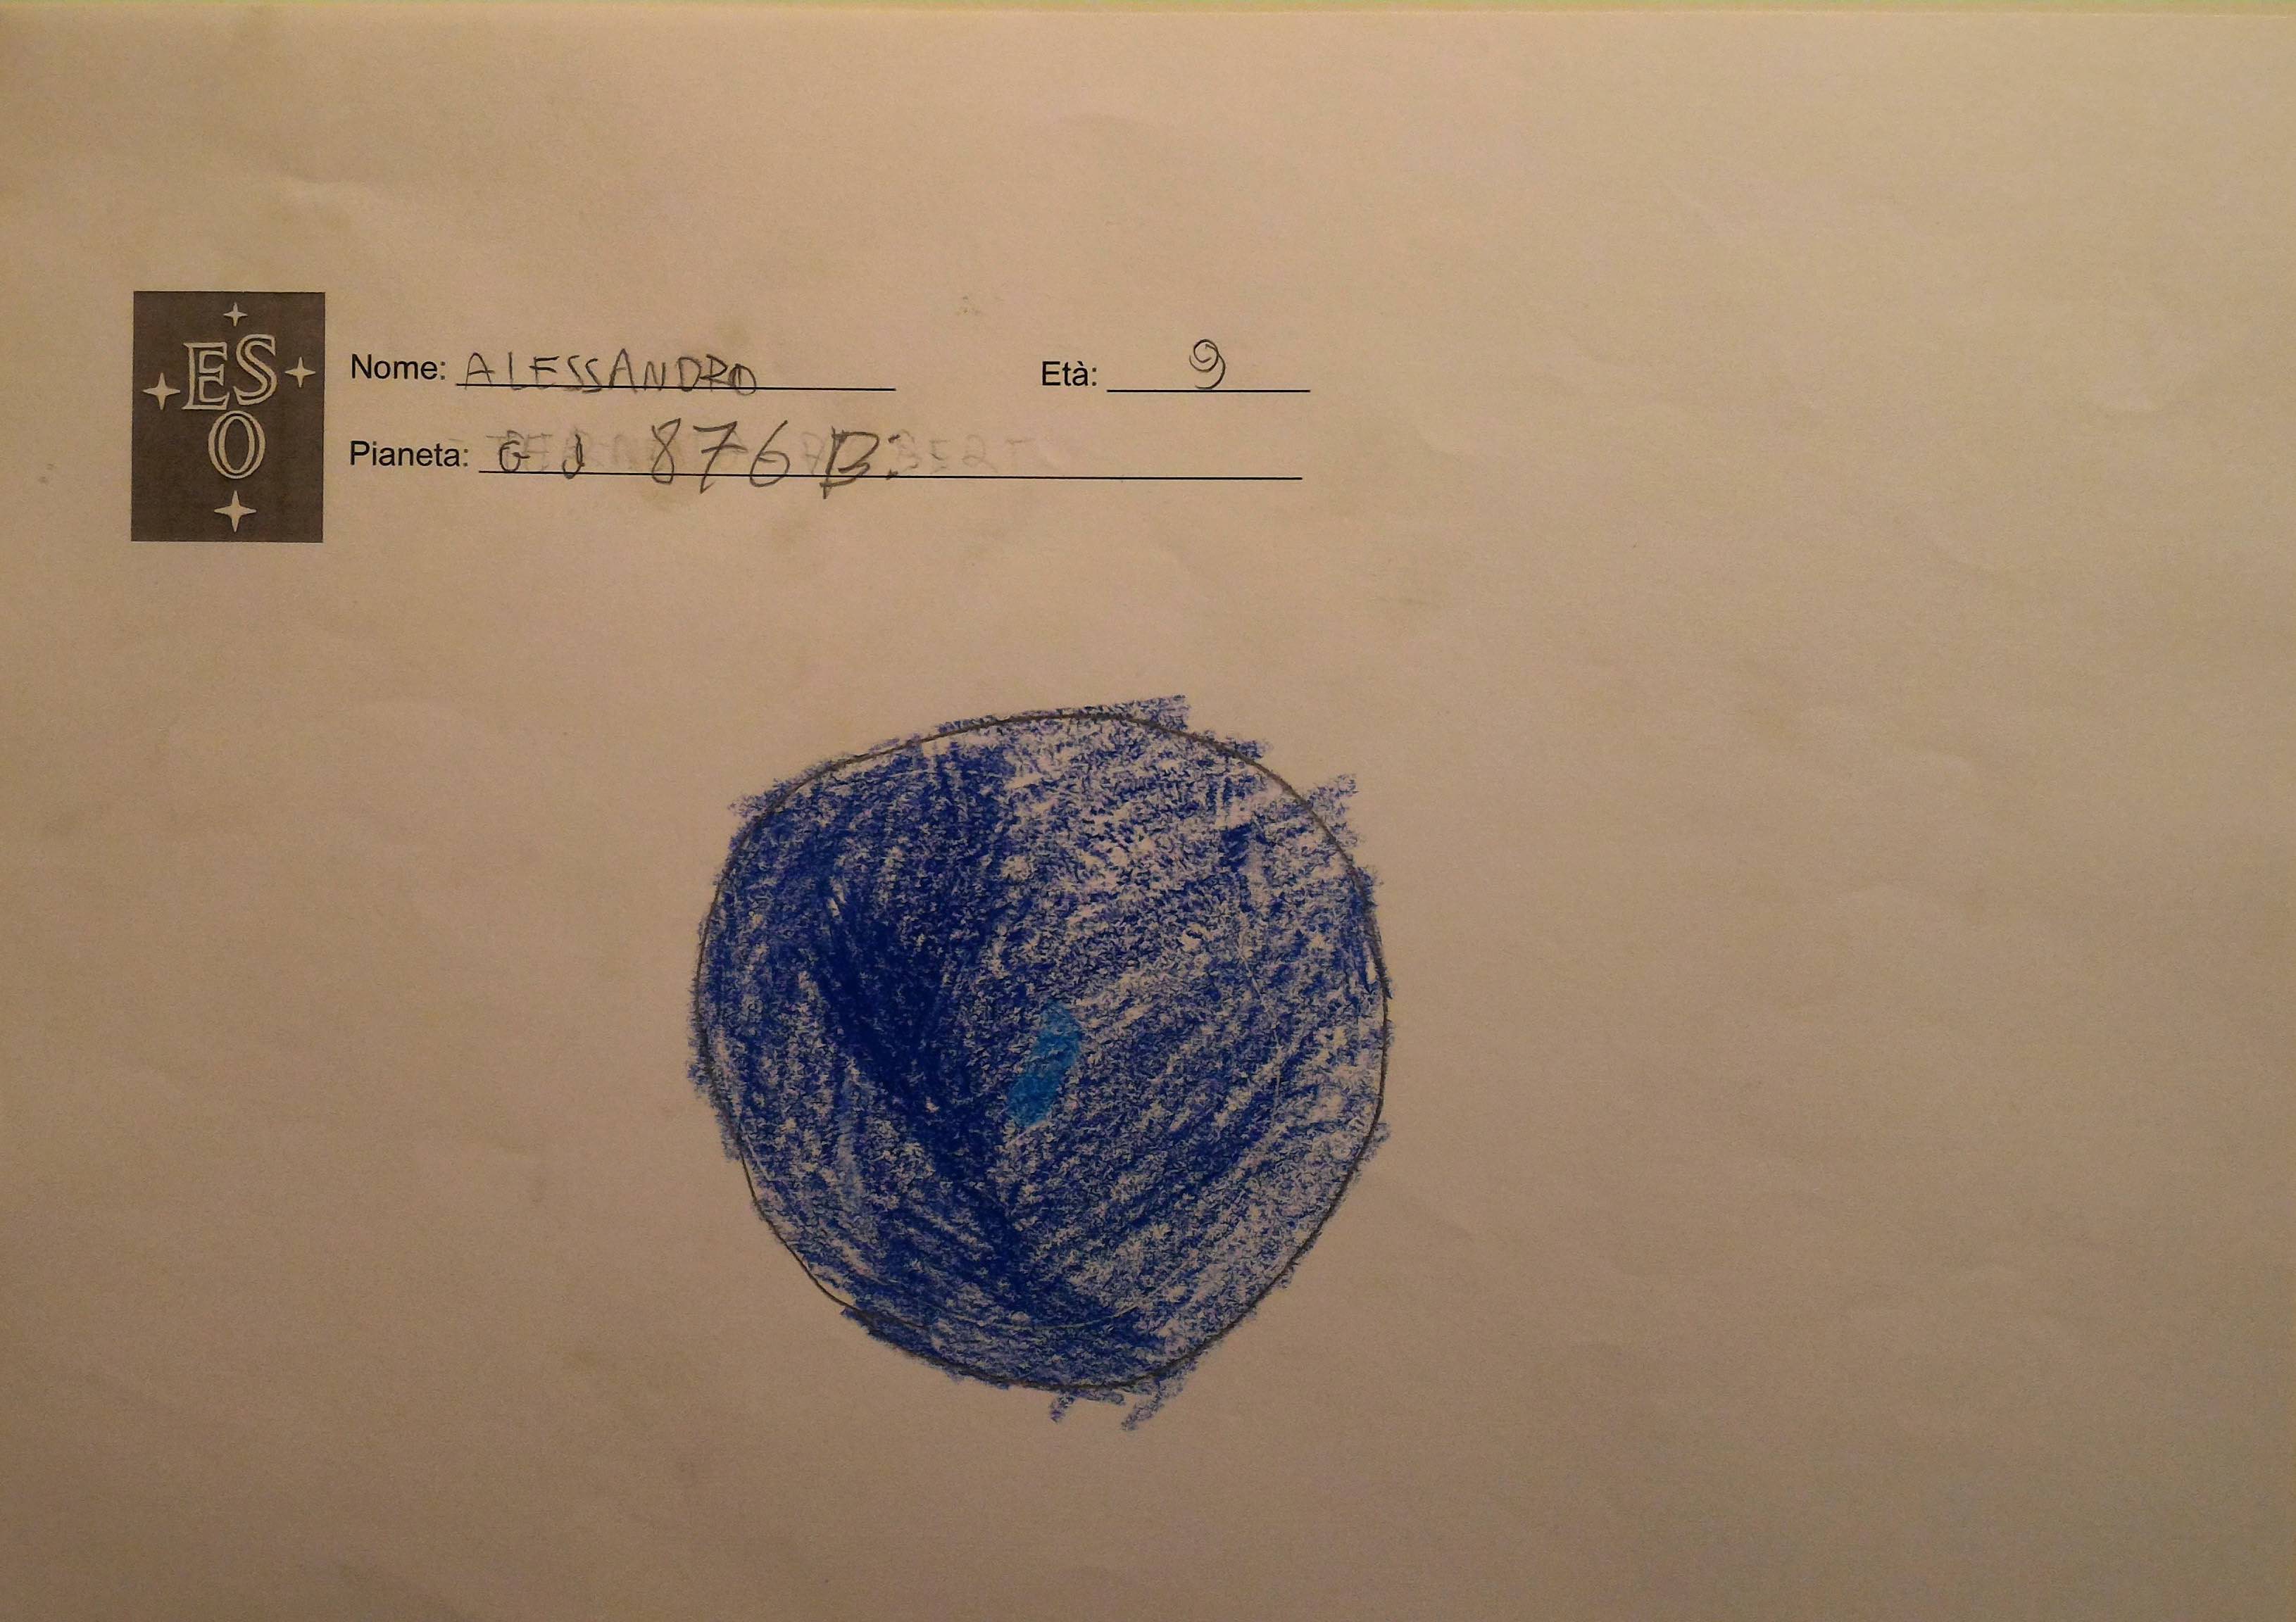 ES
O
Nome: ALESSANDRO Età: 9
Pianeta: GJ 876 B: